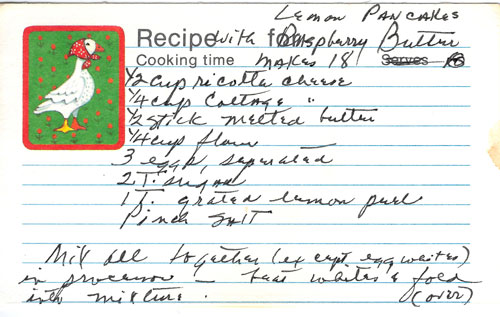 Lemon Pancakes
Recipe with for Raspberry Butter
Cooking time Makes 18 Serves 18
1/2 cup ricotta cheese
1/4 cup cottage "
1/2 stick melted butter
1/4 cup flour
3 eggs, separated
2 T. sugar
1 T. grated lemon peel
Pinch SALT
Mix all together (except egg whites)
in processor – beat whites & fold
into mixture. (over)